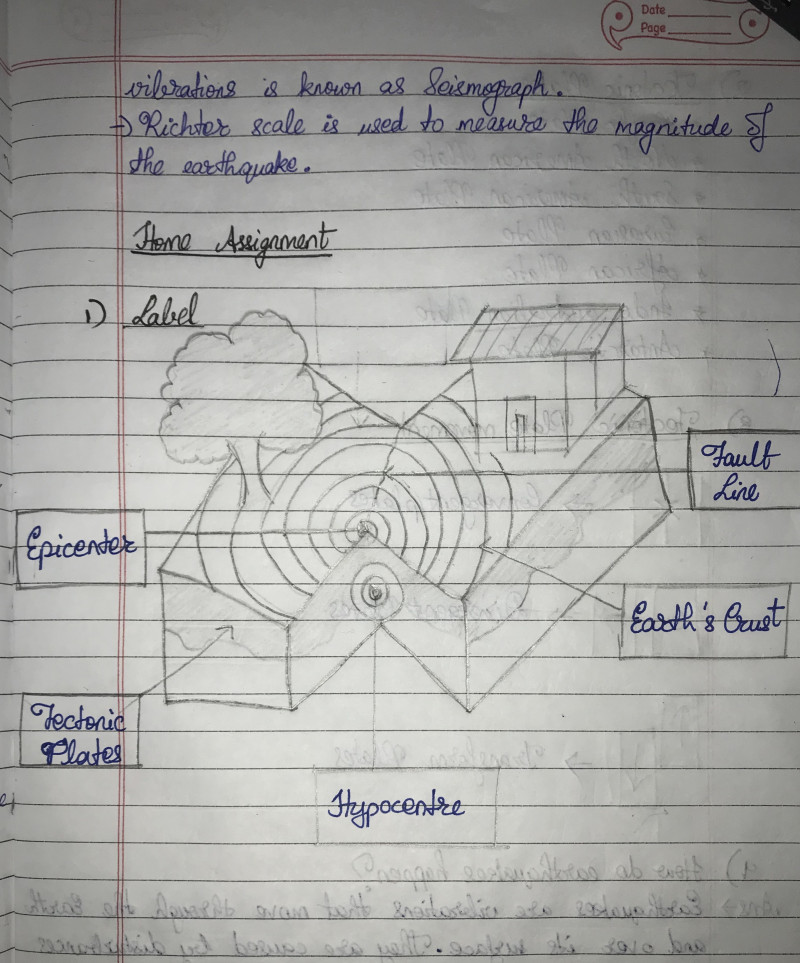 Date
Page
vibrations is known as Seismograph.
→ Richter scale is used to measure the magnitude of
the earthquake.
Home Assignment
1) Label
Fault
Line
Epicenter
Earth's Crust
Tectonic
Plates
Hypocentre